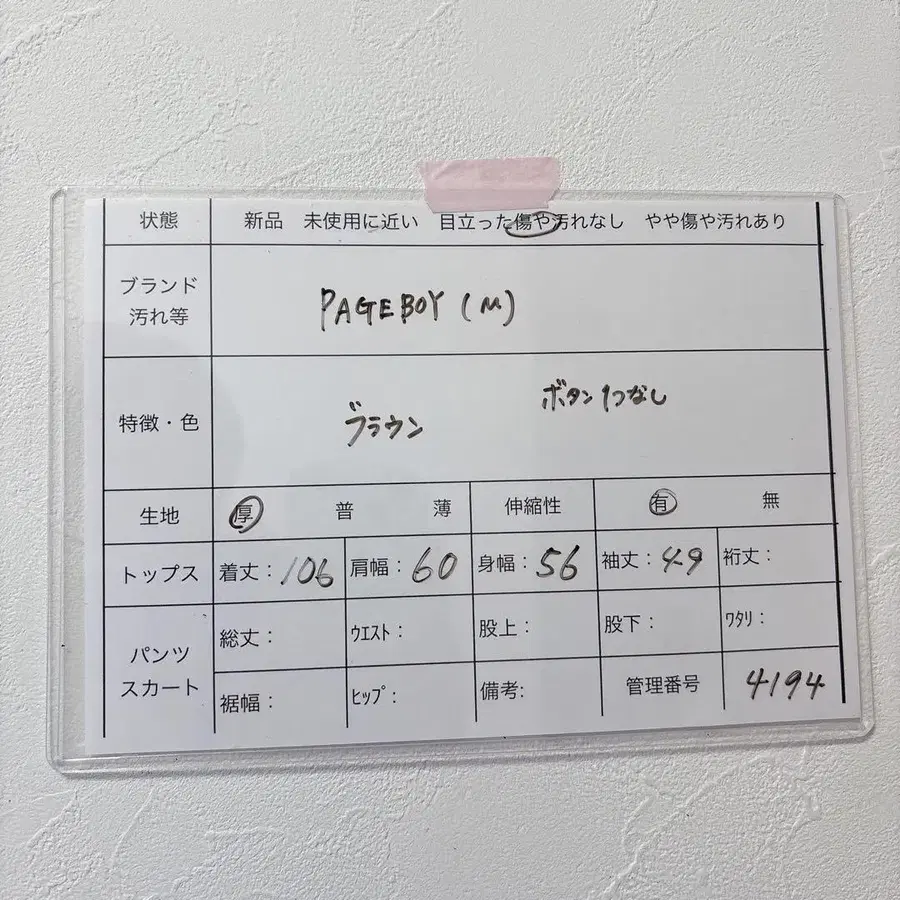 状態 新品 未使用に近い 目立った傷や汚れなし やや傷や汚れあり
ブランド
汚れ等
PAGEBOY (M)
特徴・色
ブラウン
ボタン1つなし
生地 厚 普 薄 伸縮性 有 無
トップス 着丈：106 肩幅：60 身幅：56 袖丈：49 裄丈：
パンツ
スカート
総丈： ｳｴｽﾄ： 股上： 股下： ﾜﾀﾘ：
裾幅： ﾋｯﾌﾟ： 備考: 管理番号 4194